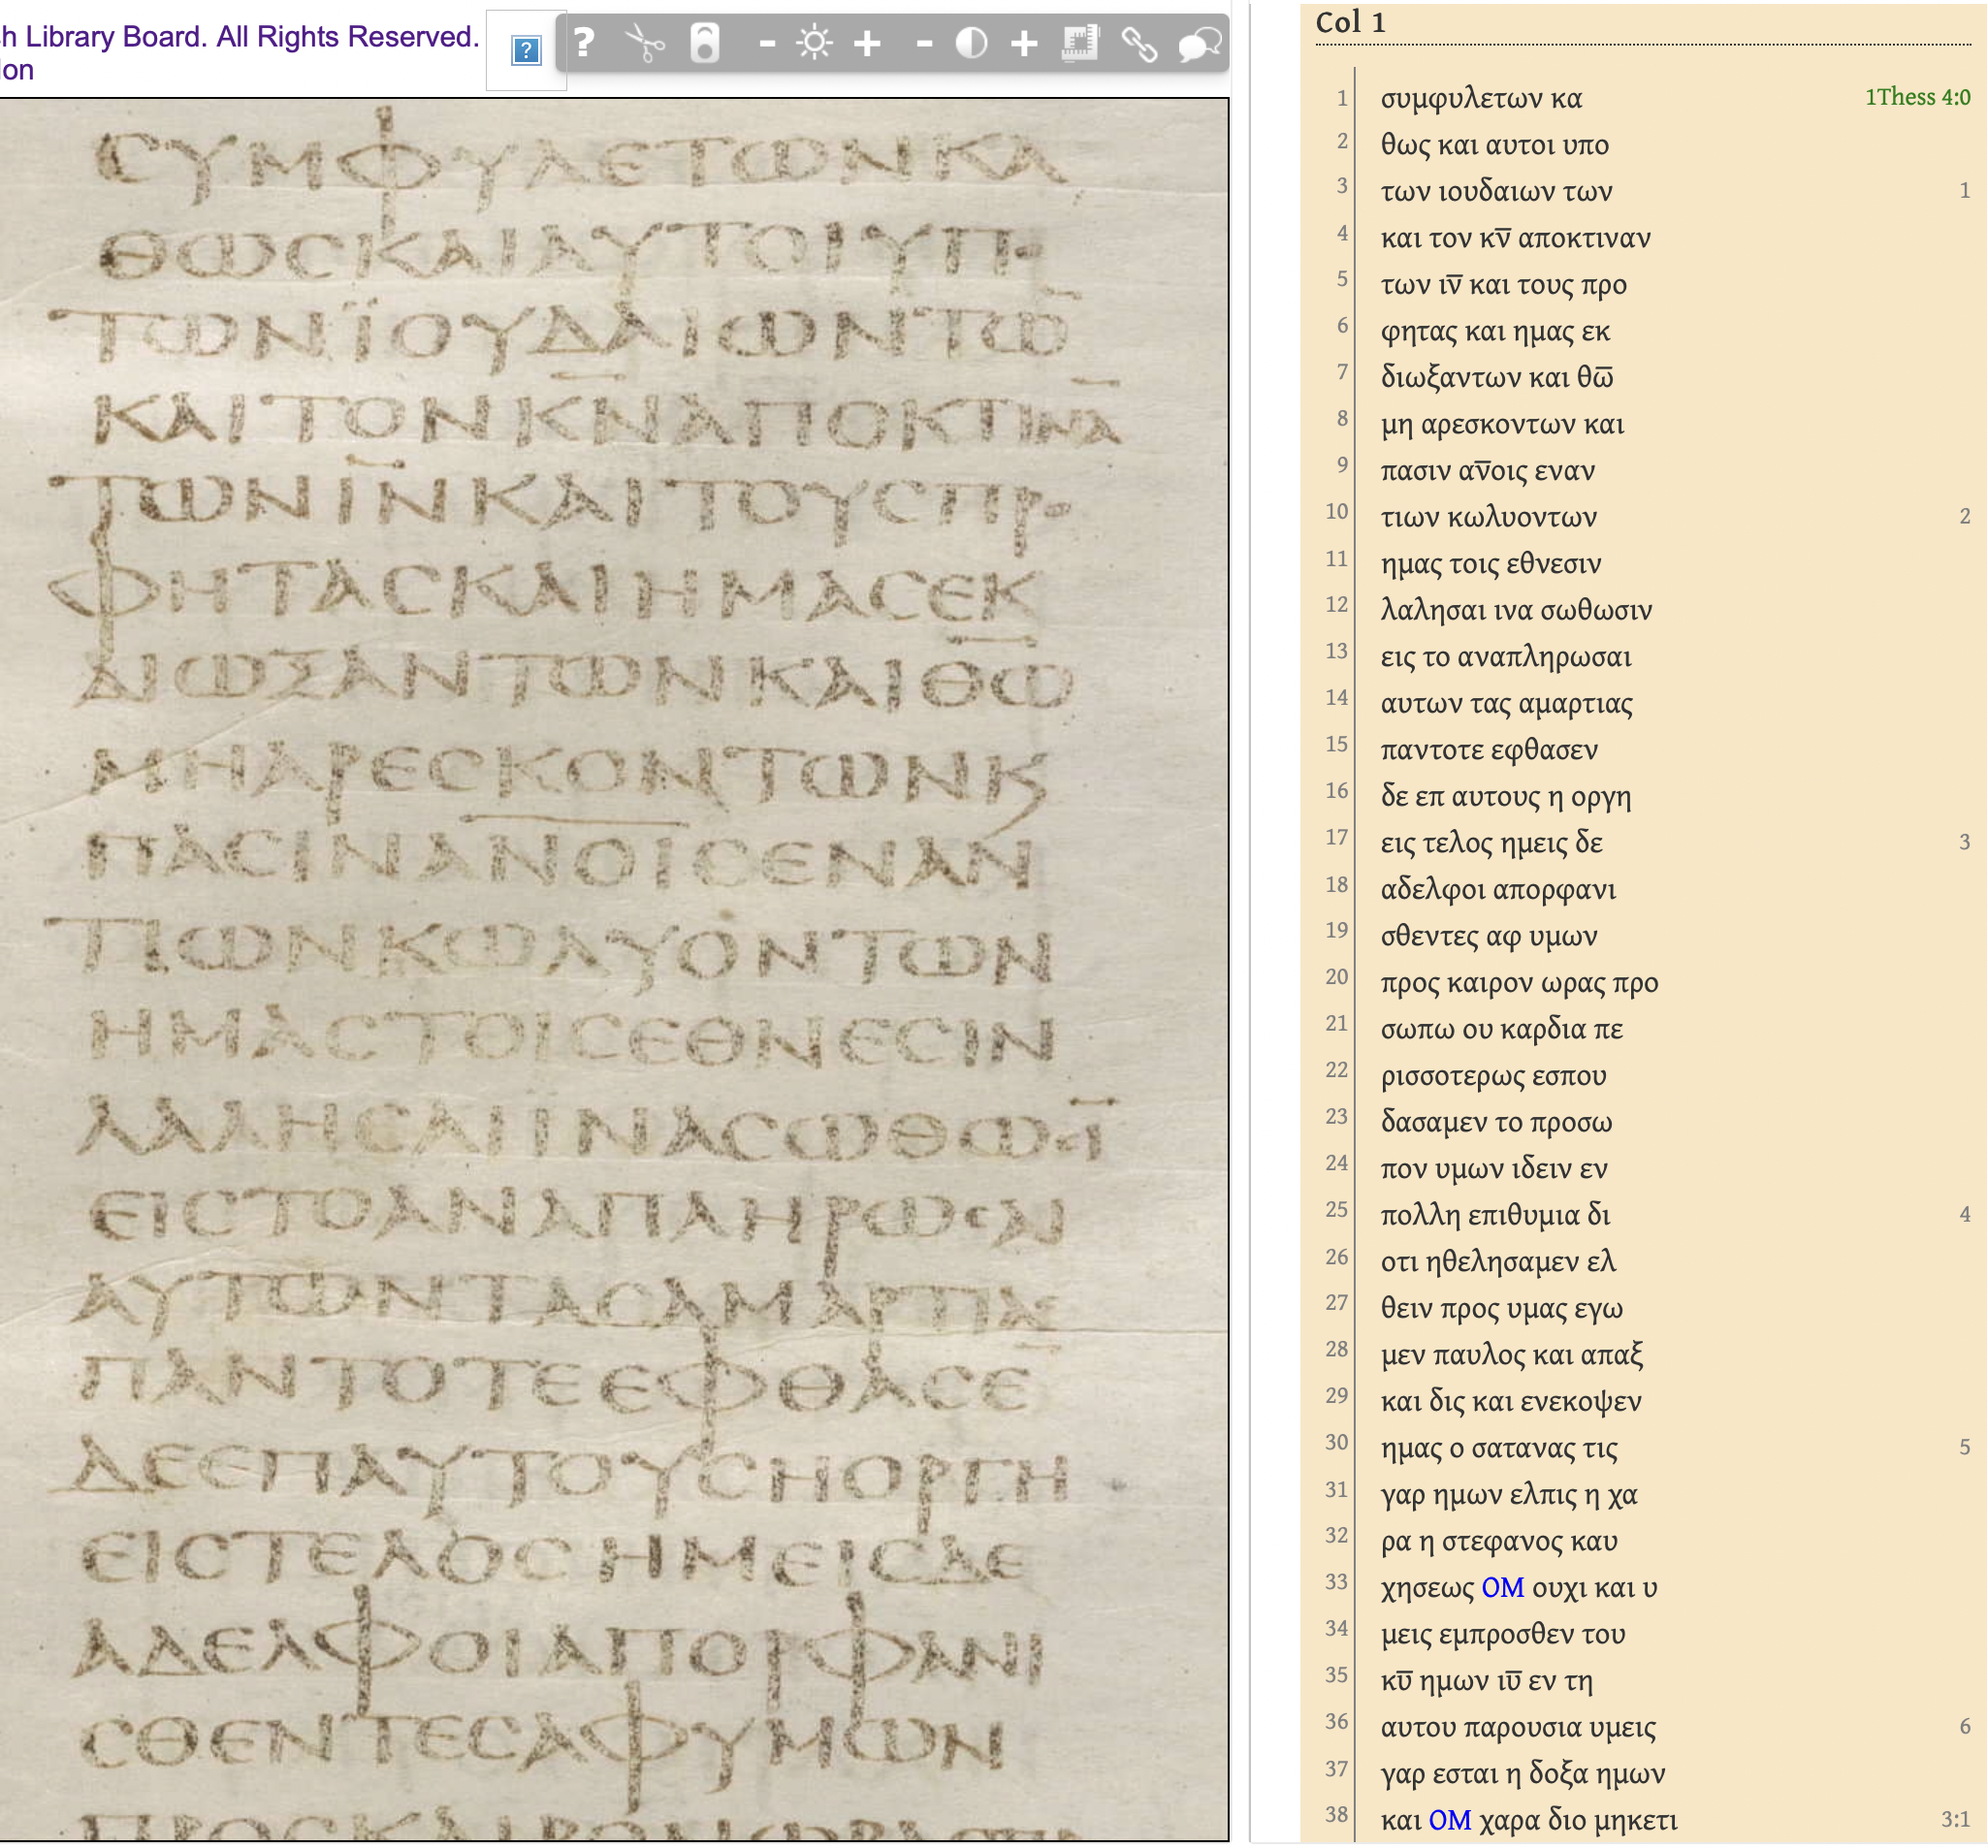 h Library Board. All Rights Reserved.
lon
ϹΥΜΦΥΛΕΤΩΝΚΑ
ΘΩϹΚΑΙΑΥΤΟΙΥΠΟ
ΤΩΝΪΟΥΔΑΙΩΝΤΩ̅
ΚΑΙΤΟΝΚ̅Ν̅ΑΠΟΚΤΙΝΑ̅
ΤΩΝΙ̅Ν̅ΚΑΙΤΟΥϹΠΡΟ
ΦΗΤΑϹΚΑΙΗΜΑϹΕΚ
ΔΙΩΞΑΝΤΩΝΚΑΙΘ̅Ω̅
ΜΗΑΡΕϹΚΟΝΤΩΝΚϗ
ΠΑϹΙΝΑ̅Ν̅Ο̅Ι̅ϹΕΝΑΝ
ΤΙΩΝΚΩΛΥΟΝΤΩΝ
ΗΜΑϹΤΟΙϹΕΘΝΕϹΙΝ
ΛΑΛΗϹΑΙΙΝΑϹΩΘΩϹΙ̅
ΕΙϹΤΟΑΝΑΠΛΗΡΩϹΑΙ
ΑΥΤΩΝΤΑϹΑΜΑΡΤΙΑϹ
ΠΑΝΤΟΤΕΕΦΘΑϹΕ̅
ΔΕΕΠΑΥΤΟΥϹΗΟΡΓΗ
ΕΙϹΤΕΛΟϹΗΜΕΙϹΔΕ
ΑΔΕΛΦΟΙΑΠΟΡΦΑΝΙ
ϹΘΕΝΤΕϹΑΦΥΜΩΝ
Col 1
1 συμφυλετων κα 1Thess 4:0
2 θως και αυτοι υπο
3 των ιουδαιων των 1
4 και τον κν̅ αποκτιναν
5 των ιν̅ και τους προ
6 φητας και ημας εκ
7 διωξαντων και θω̅
8 μη αρεσκοντων και
9 πασιν αν̅οις εναν
10 τιων κωλυοντων 2
11 ημας τοις εθνεσιν
12 λαλησαι ινα σωθωσιν
13 εις το αναπληρωσαι
14 αυτων τας αμαρτιας
15 παντοτε εφθασεν
16 δε επ αυτους η οργη
17 εις τελος ημεις δε 3
18 αδελφοι απορφανι
19 σθεντες αφ υμων
20 προς καιρον ωρας προ
21 σωπω ου καρδια πε
22 ρισσοτερως εσπου
23 δασαμεν το προσω
24 πον υμων ιδειν εν
25 πολλη επιθυμια δι 4
26 οτι ηθελησαμεν ελ
27 θειν προς υμας εγω
28 μεν παυλος και απαξ
29 και δις και ενεκοψεν
30 ημας ο σατανας τις 5
31 γαρ ημων ελπις η χα
32 ρα η στεφανος καυ
33 χησεως OM ουχι και υ
34 μεις εμπροσθεν του
35 κυ̅ ημων ιυ̅ εν τη
36 αυτου παρουσια υμεις 6
37 γαρ εσται η δοξα ημων
38 και OM χαρα διο μηκετι 3:1